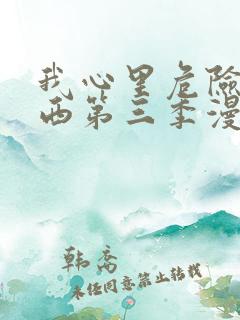 我心里危险
西第三季漫
韩乔
未经同意禁止转载